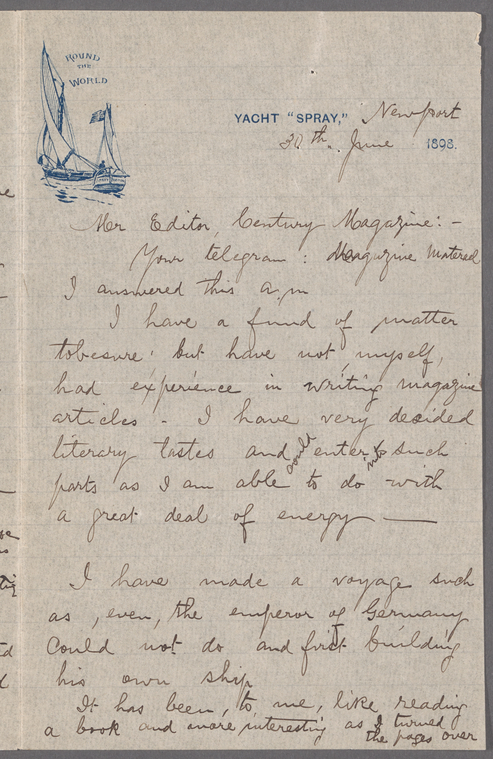 ROUND
THE
WORLD
YACHT "SPRAY," Newport
30th June 1898.
Mr Editor, Century Magazine: -
Your telegram: Maagizine Matereal
I answered this a.m
I have a fund of matter
tobesure, but have not myself,
had experience in writing magazine
articles - I have very decided
literary tastes and could enter into such
parts as I am able to do with
a great deal of energy —
I have made a voyage such
as, even, the emperor of Germany
could not do and first building
his own ship
It has been, to me, like reading
a book and more interesting as I turned
the pages over